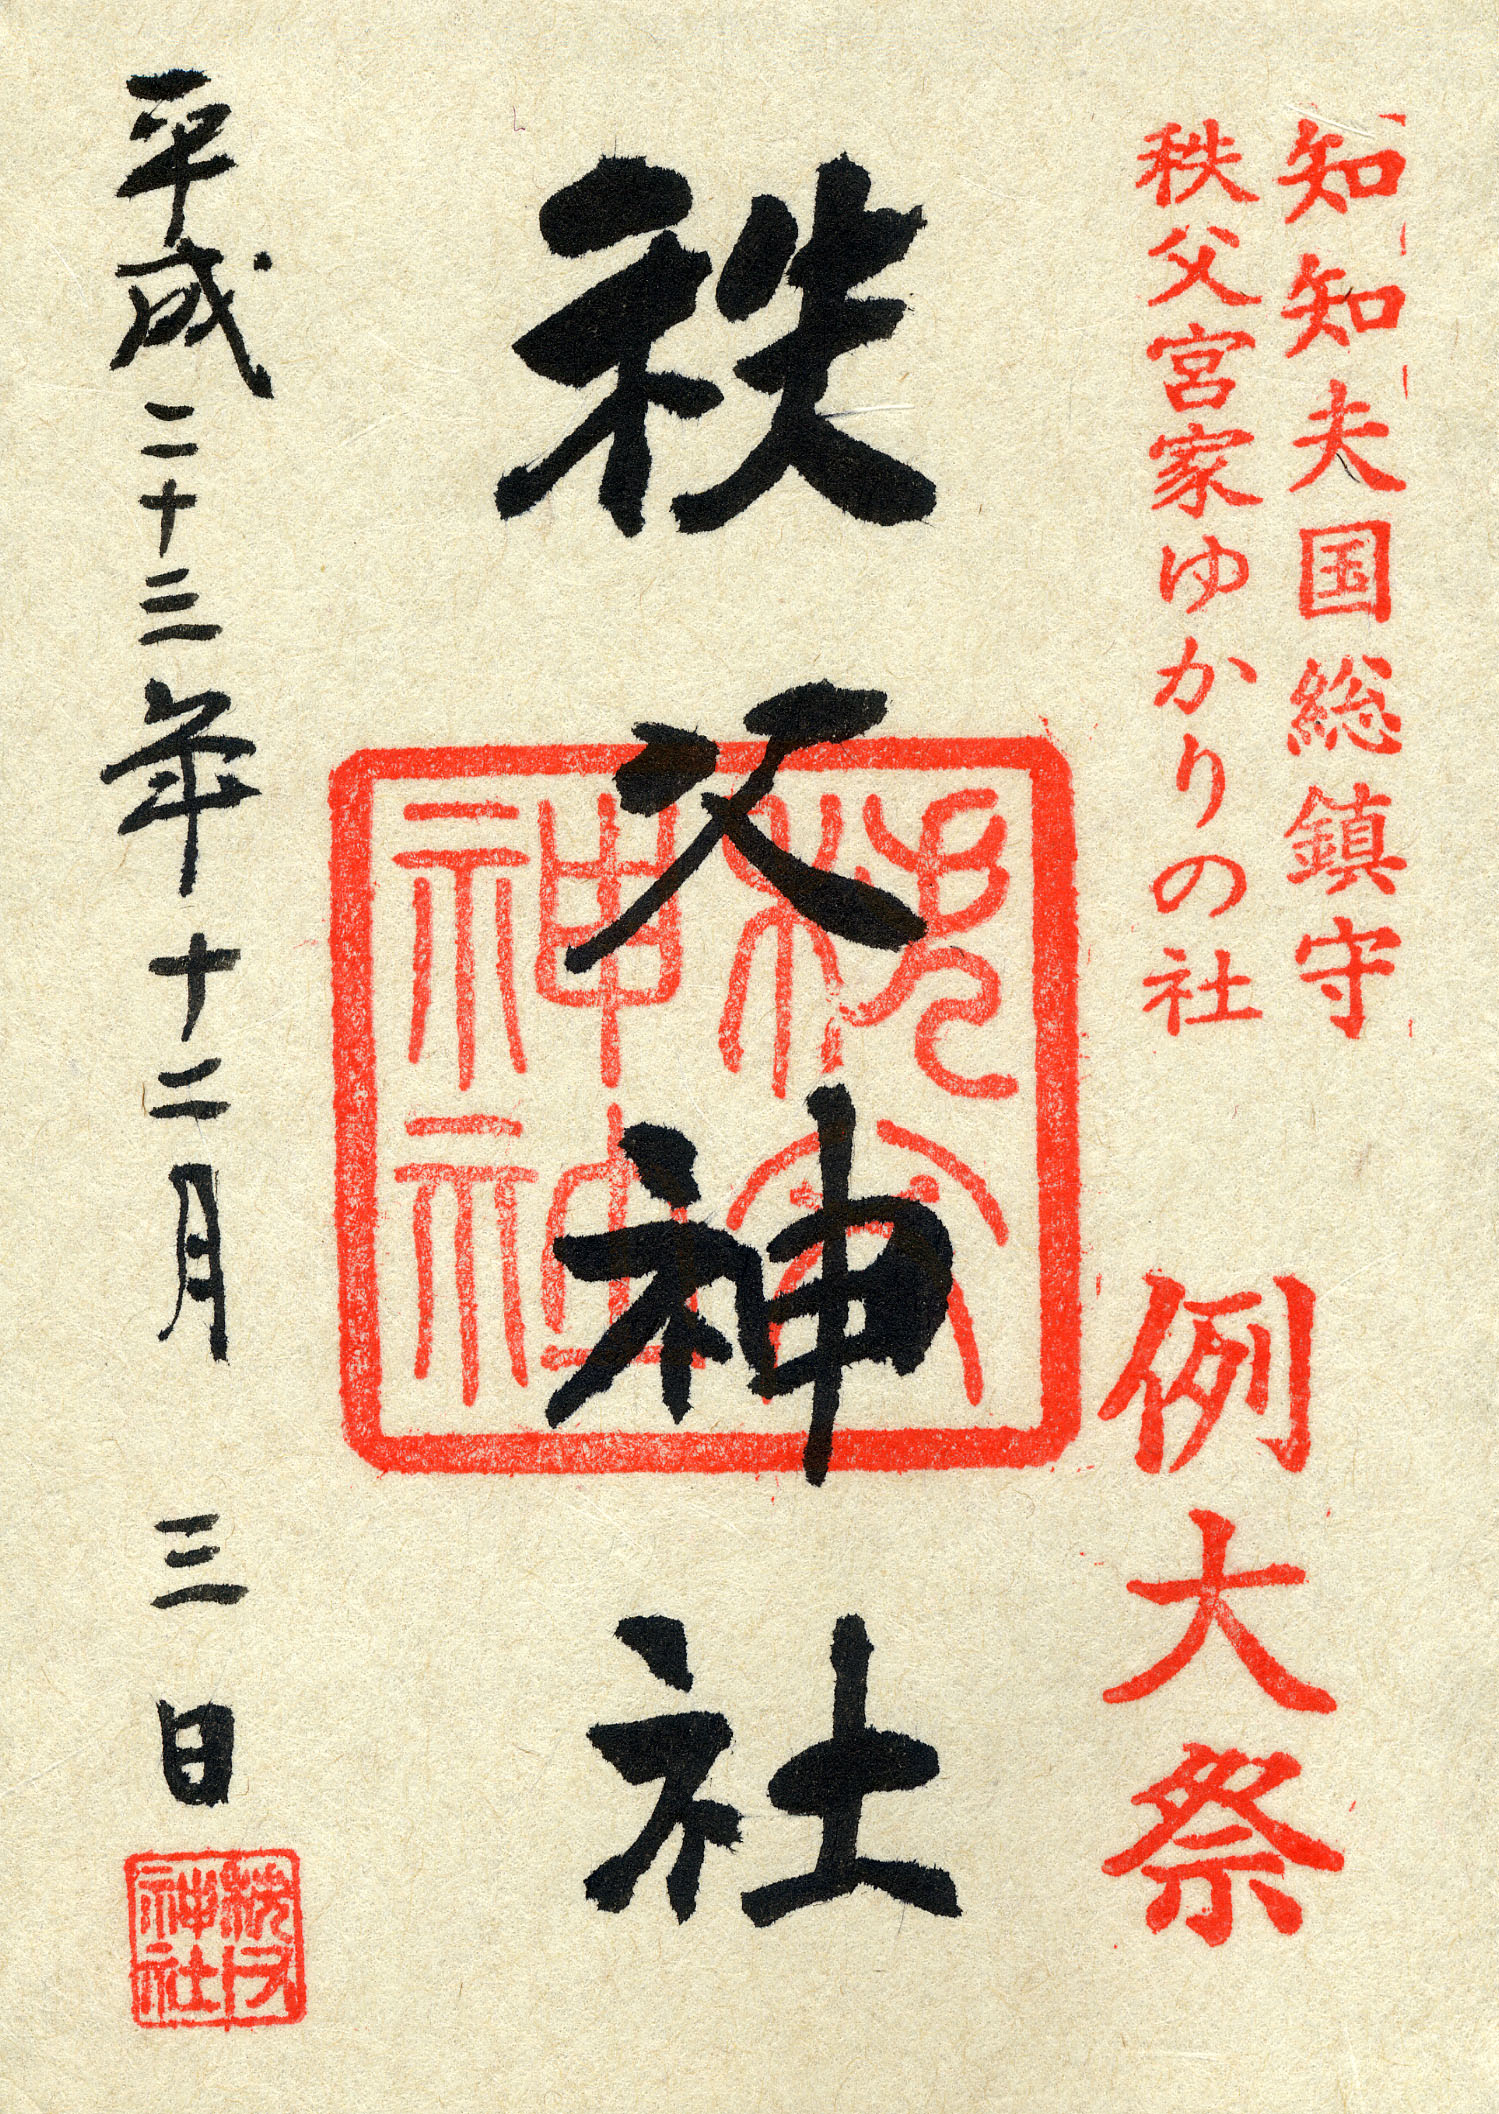 知知夫国総鎮守
秩父宮家ゆかりの社
例大祭
秩父神社
秩父神社
平成二十三年十二月三日
秩父神社